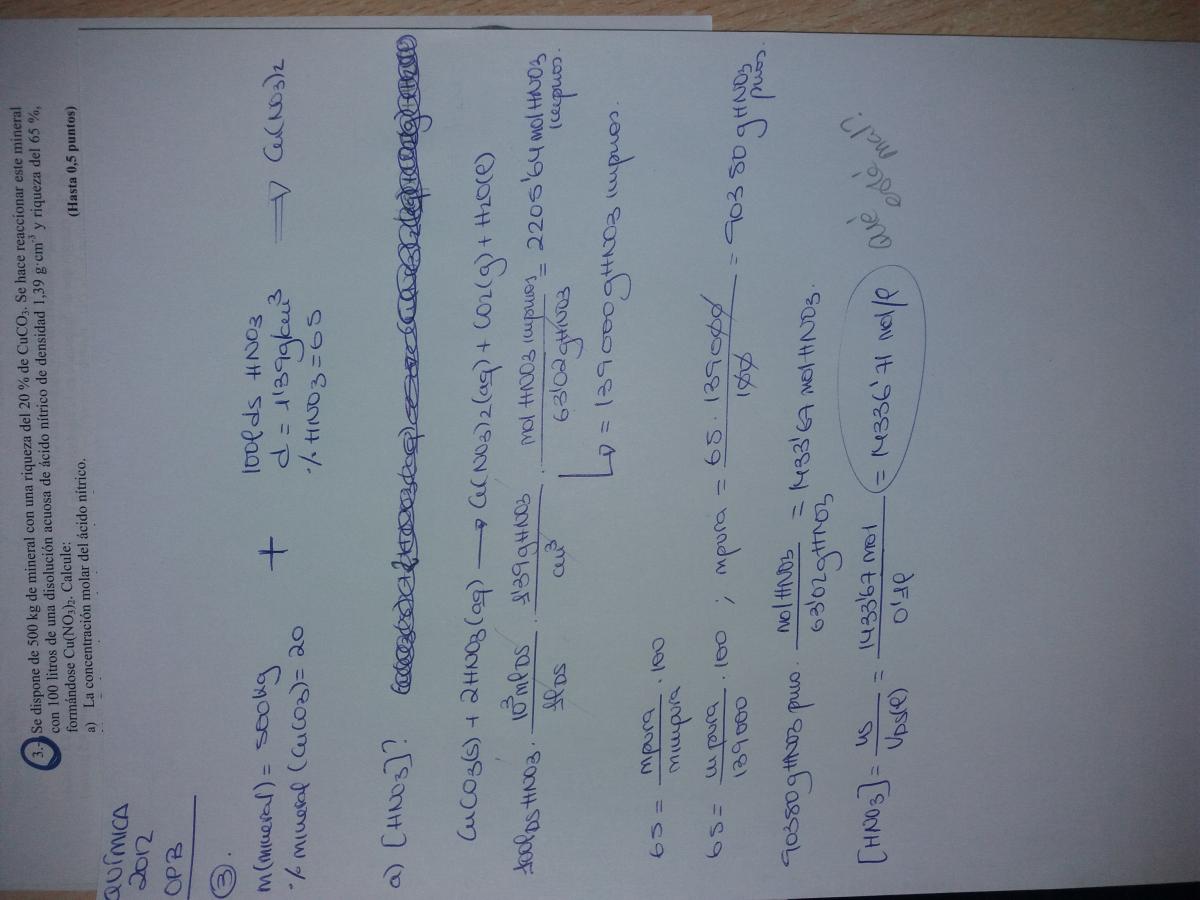 3.- Se dispone de 500 kg de mineral con una riqueza del 20 % de CuCO₃. Se hace reaccionar este mineral
con 100 litros de una disolución acuosa de ácido nítrico de densidad 1,39 g·cm⁻³ y riqueza del 65 %,
formándose Cu(NO₃)₂. Calcule:
a) La concentración molar del ácido nítrico. (Hasta 0,5 puntos)
QUÍMICA
2012
OPB
③.
m(mineral) = 500kg + 100l DS HNO3 ⟹ Cu(NO3)2
% mineral (CuCO3) = 20 d = 1'39g/cm³
% HNO3 = 65
a) [HNO3]?
CuCO3(s) + 2HNO3(aq) → Cu(NO3)2(aq) + CO2(g) + H2O(l)
100l DS HNO3 · 10³ml DS / 1l DS · 1'39g HNO3 / cm³ · mol HNO3 impuros / 63'02g HNO3 = 2205'64 mol HNO3 impuros.
↳ = 139000g HNO3 impuros.
65 = mpura / mimpura · 100
65 = mpura / 139000 · 100 ; mpura = 65 · 139000 / 100 = 90350 g HNO3 puros.
90350g HNO3 puro · mol HNO3 / 63'02g HNO3 = 1433'67 mol HNO3.
[HNO3] = ns / VDS(l) = 1433'67 mol / 0'1l = 14336'71 mol/l qué está mal?